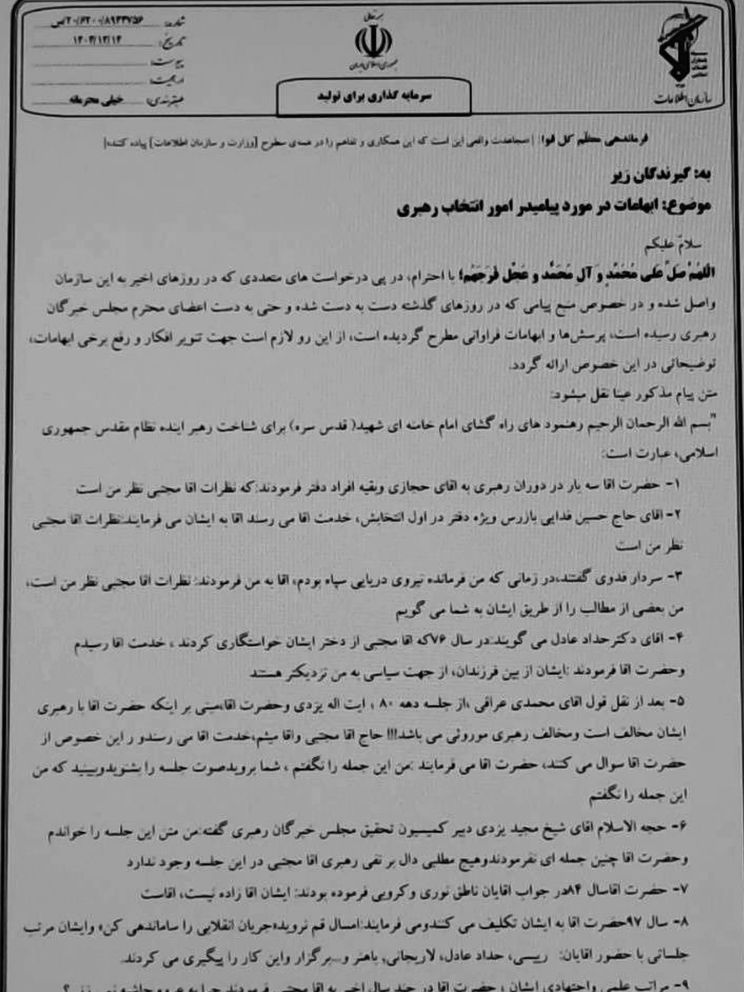 بسمه تعالی
جمهوری اسلامی ایران
سازمان اطلاعات
شماره: ۲۰/۶۲۰۰/۸۹۴۳۷۵۶/ص
تاریخ: ۱۴۰۴/۱۲/۱۴
پیوست:
اهمیت:
طبقه‌بندی: خیلی محرمانه
سرمایه گذاری برای تولید
فرماندهی معظّم کل قوا: |مجاهدت واقعی این است که این همکاری و تفاهم را در همه‌ی سطوح [وزارت و سازمان اطلاعات] پیاده کنند|
به: گیرندگان زیر
موضوع: ابهامات در مورد پیامیدر امور انتخاب رهبری
سلامٌ علیکم
اللهُمَّ صَلِّ عَلی مُحَمَّدٍ وَ آلِ مُحَمَّد و عجّل فَرَجَهُم؛ با احترام، در پی درخواست های متعددی که در روزهای اخیر به این سازمان
واصل شده و در خصوص منبع پیامی که در روزهای گذشته دست به دست شده و حتی به دست اعضای محترم مجلس خبرگان
رهبری رسیده است، پرسش‌ها و ابهامات فراوانی مطرح گردیده است، از این رو لازم است جهت تنویر افکار و رفع برخی ابهامات،
توضیحاتی در این خصوص ارائه گردد.
متن پیام مذکور عینا نقل میشود:
"بسم الله الرحمان الرحیم رهنمود های راه گشای امام خامنه ای شهید( قدس سره) برای شناخت رهبر اینده نظام مقدس جمهوری
اسلامی، عبارت است:
۱- حضرت اقا سه بار در دوران رهبری به اقای حجازی وبقیه افراد دفتر فرمودند:که نظرات اقا مجتبی نظر من است
۲- اقای حاج حسین فدایی بازرس ویژه دفتر در اول انتخابش، خدمت اقا می رسند اقا به ایشان می فرمایند:نظرات اقا مجتبی
نظر من است
۳- سردار فدوی گفتند،در زمانی که من فرمانده نیروی دریایی سپاه بودم، اقا به من فرمودند: نظرات اقا مجتبی نظر من است،
من بعضی از مطالب را از طریق ایشان به شما می گویم
۴- اقای دکترحداد عادل می گویند:در سال ۷۶که اقا مجتبی از دختر ایشان خواستگاری کردند ، خدمت اقا رسیدم
وحضرت اقا فرمودند :ایشان از بین فرزندان، از جهت سیاسی به من نزدیکتر هستند
۵- بعد از نقل قول اقای محمدی عراقی ،از جلسه دهه ۸۰ ، ایت اله یزدی وحضرت اقا،مبنی بر اینکه حضرت اقا با رهبری
ایشان مخالف است ومخالف رهبری موروثی می باشد!!! حاج اقا مجتبی واقا میثم،خدمت اقا می رسندو ر این خصوص از
حضرت اقا سوال می کنند، حضرت اقا می فرمایند :من این جمله را نگفتم ، شما برویدصوت جلسه را بشنویدوببینید که من
این جمله را نگفتم
۶- حجه الاسلام اقای شیخ مجید یزدی دبیر کمیسیون تحقیق مجلس خبرگان رهبری گفته:من متن این جلسه را خواندم
وحضرت اقا چنین جمله ای نفرمودندوهیچ مطلبی دال بر نفی رهبری اقا مجتبی در این جلسه وجود ندارد
۷- حضرت اقاسال ۸۴در جواب اقایان ناطق نوری وکروبی فرموده بودند: ایشان اقا زاده نیست، اقاست
۸- سال ۹۷حضرت اقا به ایشان تکلیف می کنندومی فرمایند:امسال قم نرویدهجریان انقلابی را ساماندهی کن، وایشان مرتب
جلساتی با حضور اقایان: رییسی، حداد عادل، لاریجانی، باهنر و...برگزار واین کار را پیگیری می کردند.
۹- مراتب علمی واجتهادی ایشان ، حضرت اقا در چند سال اخیر به اقا مجتبی فرمودند